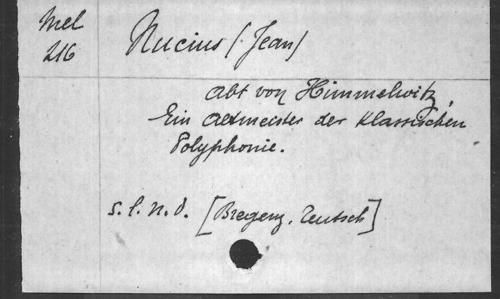 Mel
216
Nucius (Jean)
Abt von Himmelwitz,
Ein Altmeister der klassischen
Polyphonie.
s. l. n. d. [Bregenz, Teutsch]